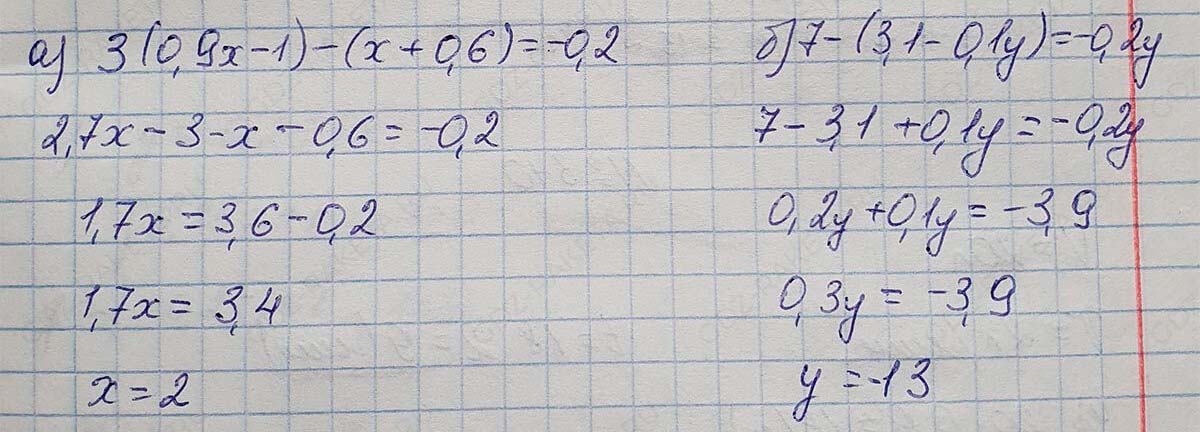 а) 3(0,9x-1)-(x+0,6)=-0,2
2,7x-3-x-0,6=-0,2
1,7x=3,6-0,2
1,7x=3,4
x=2
б) 7-(3,1-0,1y)=-0,2y
7-3,1+0,1y=-0,2y
0,2y+0,1y=-3,9
0,3y=-3,9
y=-13